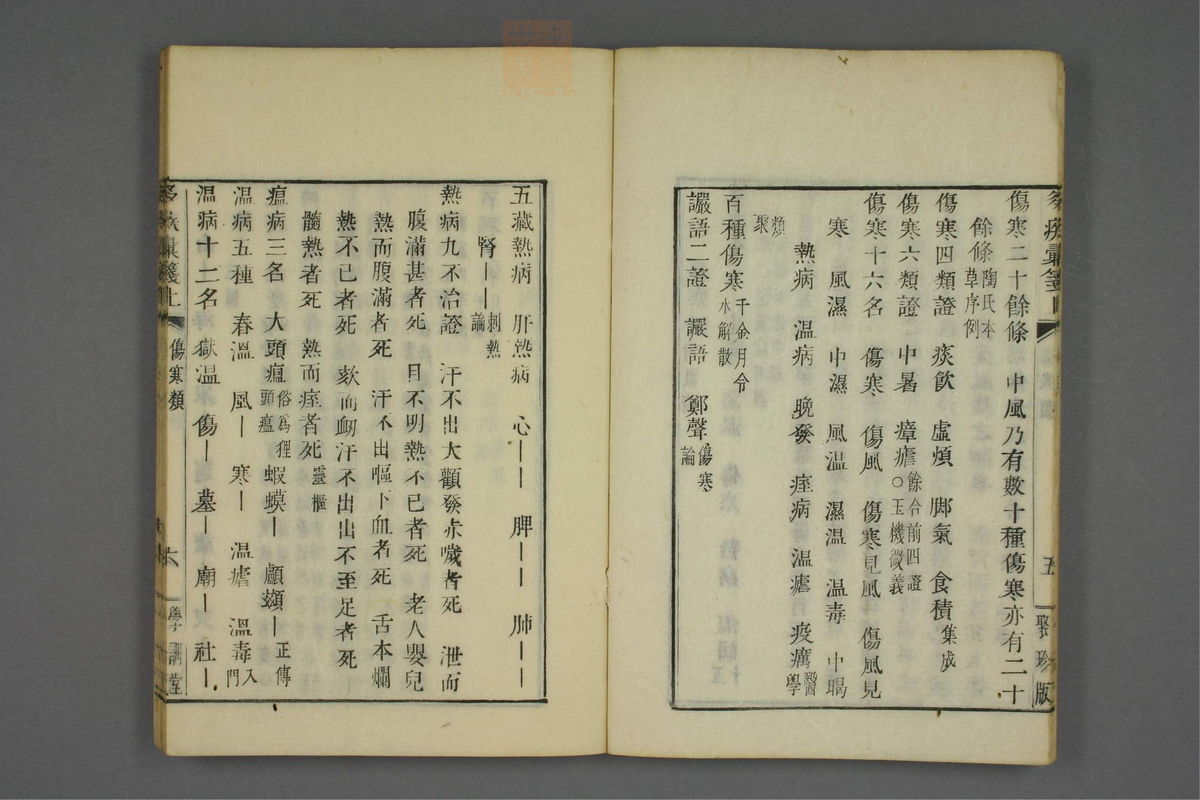 傷寒二十餘條 中風乃有數十種傷寒亦有二十
餘條 陶氏本草序例
傷寒四類證 痰飲 虛煩 脚氣 食積 集成
傷寒六類證 中暑 瘴瘧 餘合前四證○玉機微義
傷寒十六名 傷寒 傷風 傷寒見風 傷風見
寒 風濕 中濕 風温 濕温 温毒 中暍
熱病 温病 晚發 痓病 温瘧 疫癘 醫學
類聚
百種傷寒 千金月令水解散
讝語二證 讝語 鄭聲 傷寒論
五 聚珍版
五藏熱病 肝熱病 心｜｜ 脾｜｜ 肺｜｜
腎｜｜ 刺熱論
熱病九不治證 汗不出大顴發赤噦者死 泄而
腹滿甚者死 目不明熱不已者死 老人嬰兒
熱而腹滿者死 汗不出嘔下血者死 舌本爛
熱不已者死 欬而衂汗不出出不至足者死
髓熱者死 熱而痓者死 靈樞
瘟病三名 大頭瘟 俗爲狸頭瘟 蝦蟆｜ 顱䫙｜ 正傳
温病五種 春温 風｜ 寒｜ 温瘧 温毒 入門
温病十二名 獄温 傷｜ 墓｜ 廟｜ 社｜
傷寒類 六 學訓堂